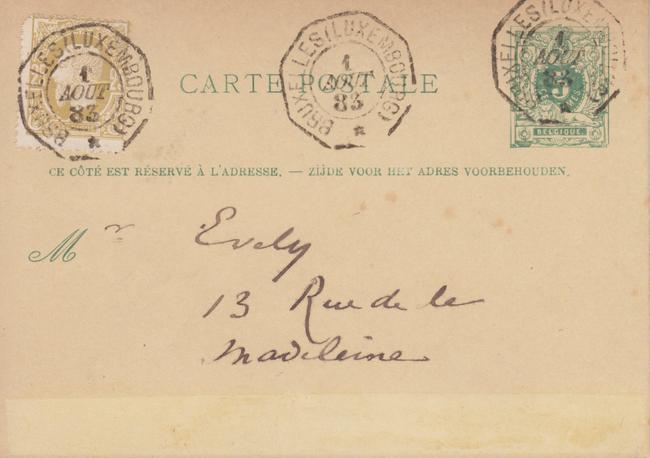 BRUXELLES (LUXEMBOURG)
1
AOUT
83
BRUXELLES (LUXEMBOURG)
1
AOUT
83
BRUXELLES (LUXEMBOURG)
1
AOUT
83
5
BELGIQUE
CARTE POSTALE
CE CÔTÉ EST RÉSERVÉ À L'ADRESSE. — ZIJDE VOOR HET ADRES VOORBEHOUDEN.
M r Evely
13 Rue de la
Madeleine